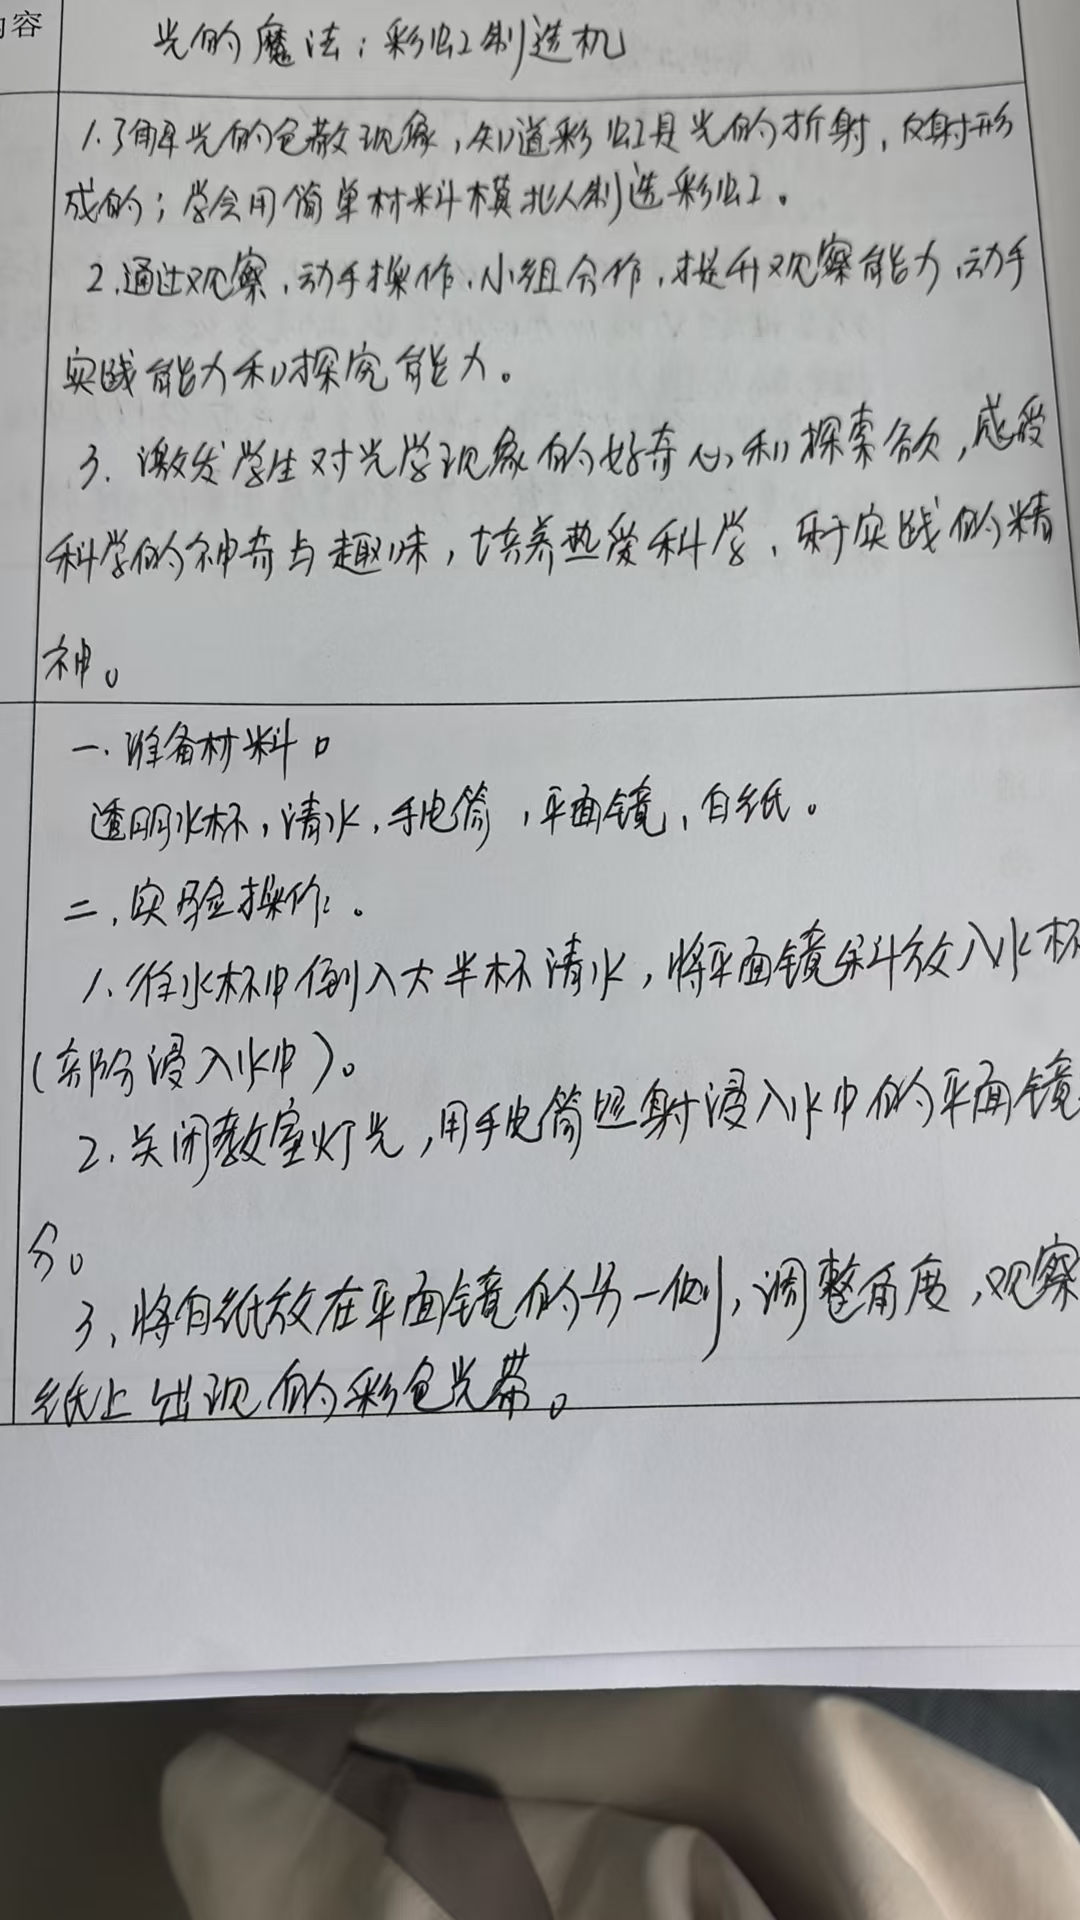 内容
光的魔法:彩虹制造机
1.了解光的色散现象,知道彩虹是光的折射、反射形
成的;学会用简单材料模拟人制造彩虹。
2.通过观察、动手操作、小组合作,提升观察能力、动手
实践能力和探究能力。
3.激发学生对光学现象的好奇心和探索欲,感受
科学的神奇与趣味,培养热爱科学、乐于实践的精
神。
一.准备材料。
透明水杯,清水,手电筒,平面镜,白纸。
二.实验操作。
1.往水杯中倒入大半杯清水,将平面镜斜放入水杯
(部分浸入水中)。
2.关闭教室灯光,用手电筒照射浸入水中的平面镜
分。
3.将白纸放在平面镜的另一侧,调整角度,观察
纸上出现的彩色光带。